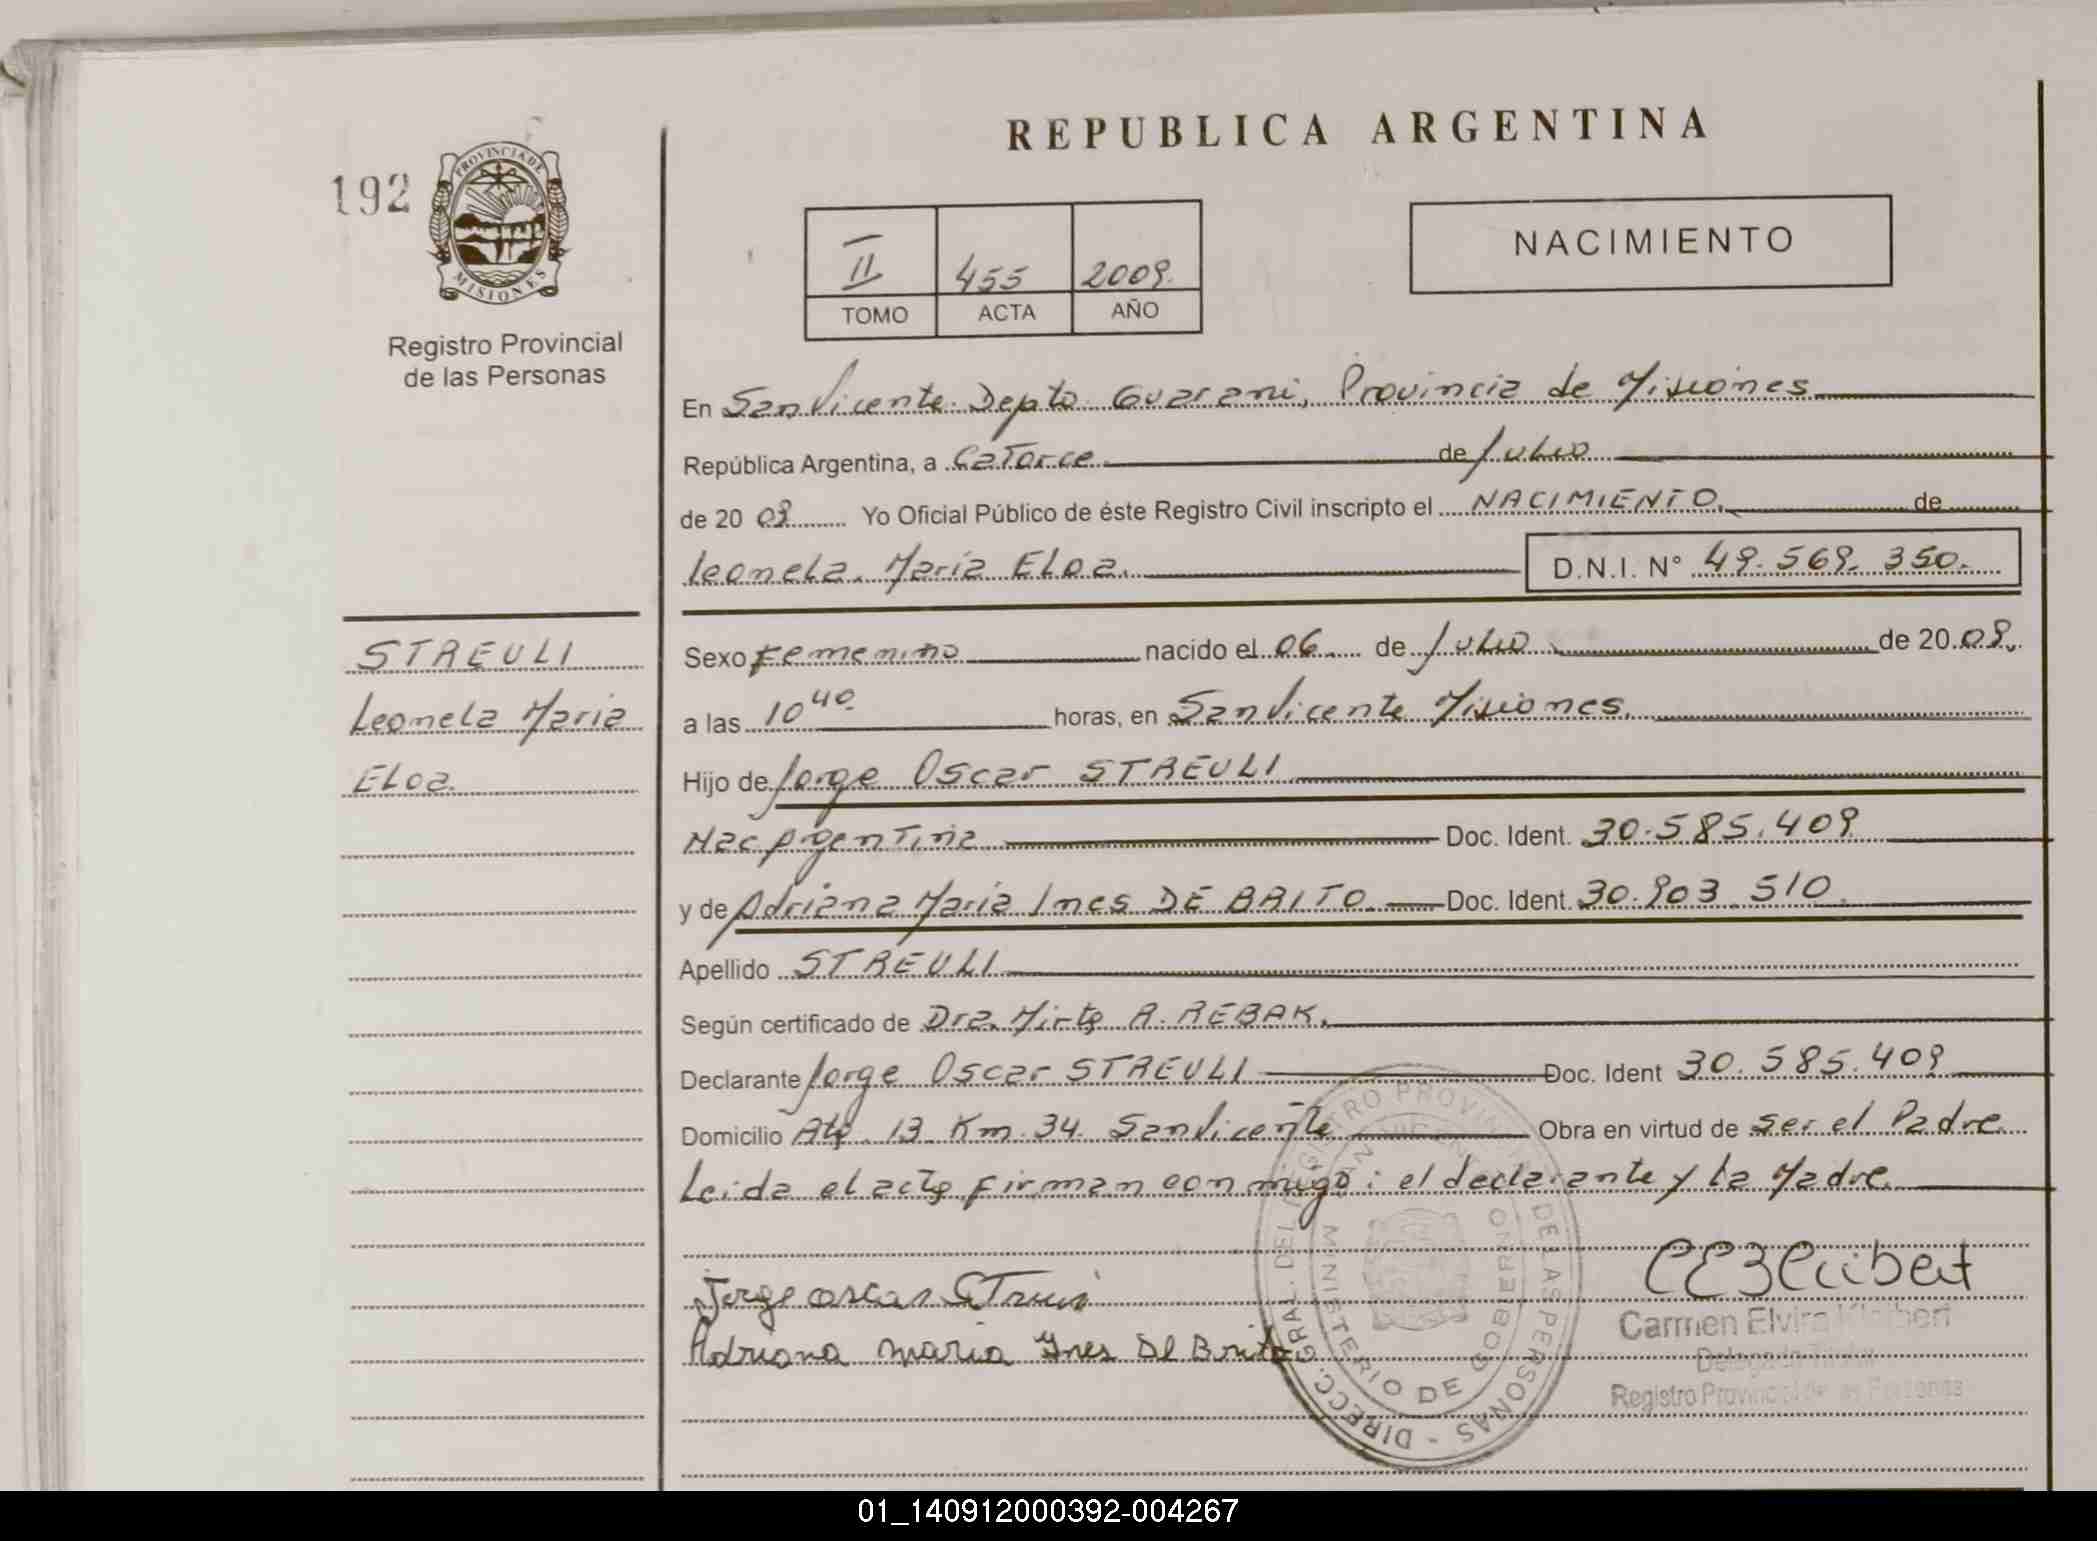 REPUBLICA ARGENTINA
192
PROVINCIA DE
MISIONES
Registro Provincial
de las Personas
NACIMIENTO
II 455 2009.
TOMO ACTA AÑO
En San Vicente Depto Guarani, Provincia de Misiones
República Argentina, a Catorce de Julio
de 20 09 Yo Oficial Público de éste Registro Civil inscripto el NACIMIENTO. de
Leonela Maria Eloa. D.N.I. N° 49.569.350.
STREULI
Leonela Maria
Eloa.
Sexo Femenino nacido el 06 de Julio de 20 09.
a las 10 40 horas, en San Vicente Misiones.
Hijo de Jorge Oscar STREULI
Nac Argentina Doc. Ident. 30.585.409
y de Adriana Maria Ines DE BRITO Doc. Ident. 30.903.510.
Apellido STREULI
Según certificado de Dra. Mirta R. REBAK.
Declarante Jorge Oscar STREULI Doc. Ident 30.585.409
Domicilio Km 34 San Vicente Obra en virtud de ser el Padre
Leida el acta firman con migo: el declarante y la Madre.
Jorge oscar
Adriana maria Ynes De Brito
DIRECC. GRAL. DEL REGISTRO PROVINCIAL DE LAS PERSONAS -
MINISTERIO DE GOBIERNO
SAN VICENTE
Carmen Elvira
Delegada Titular
Registro Provincial de las Personas
01_140912000392-004267